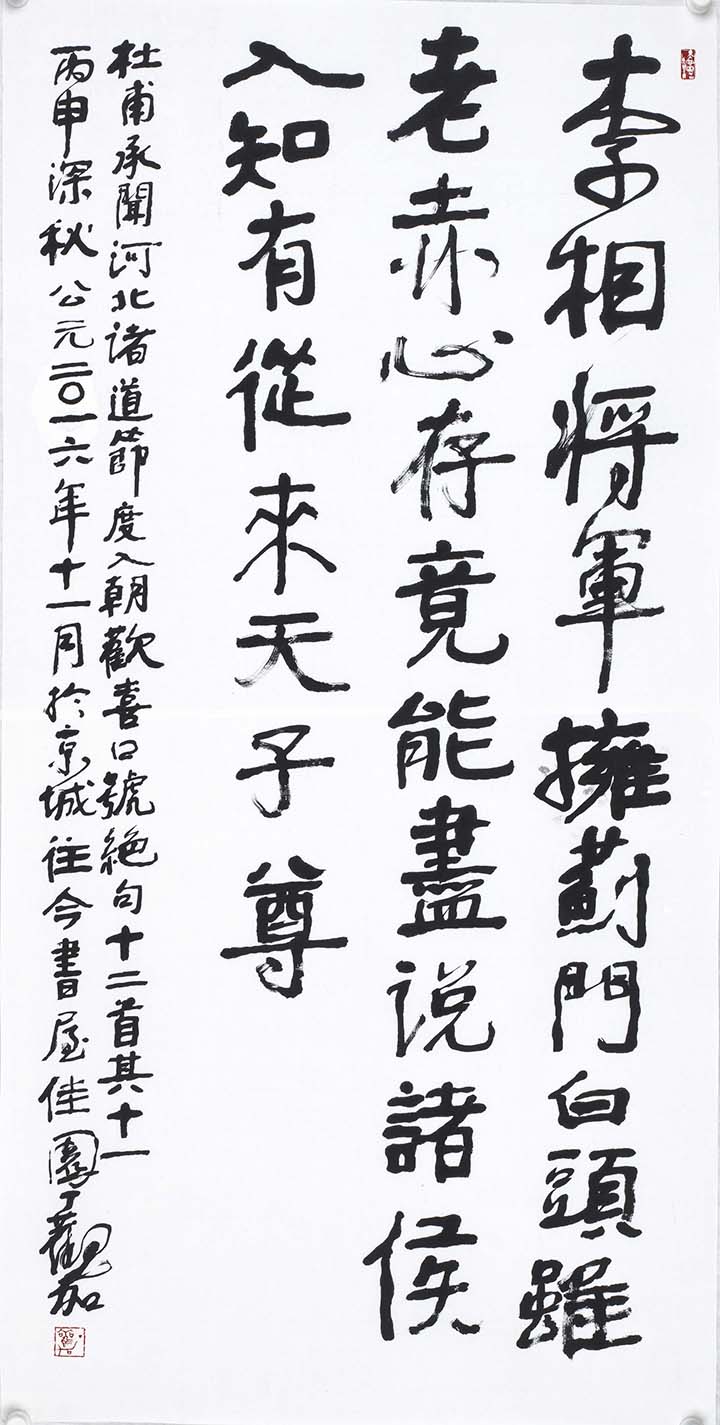 李相將軍擁薊門白頭雖
老赤心存竟能盡説諸侯
入知有從來天子尊
杜甫承聞河北諸道節度入朝歡喜口號絶句十二首其十一
丙申深秋公元二〇一六年十一月於京城往今書屋佳園丁觀加